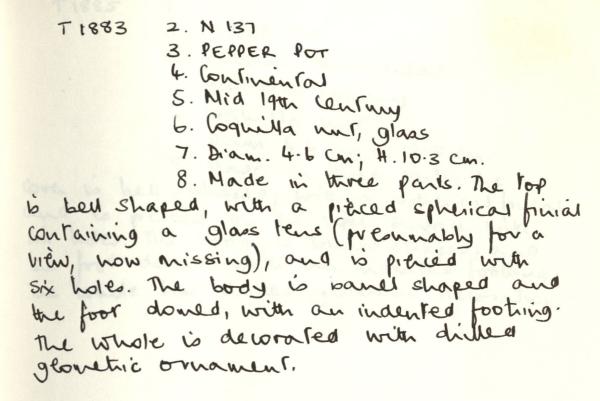 T 1883 2. N 137
3. PEPPER POT
4. Continental
5. Mid 19th century
6. Coquilla nut, glass
7. Diam. 4.6 cm; H. 10.3 cm.
8. Made in three parts. The top
is bell shaped, with a pierced spherical finial
containing a glass lens (presumably for a
view, now missing), and is pierced with
six holes. The body is barrel shaped and
the foot domed, with an indented footring.
The whole is decorated with drilled
geometric ornament.